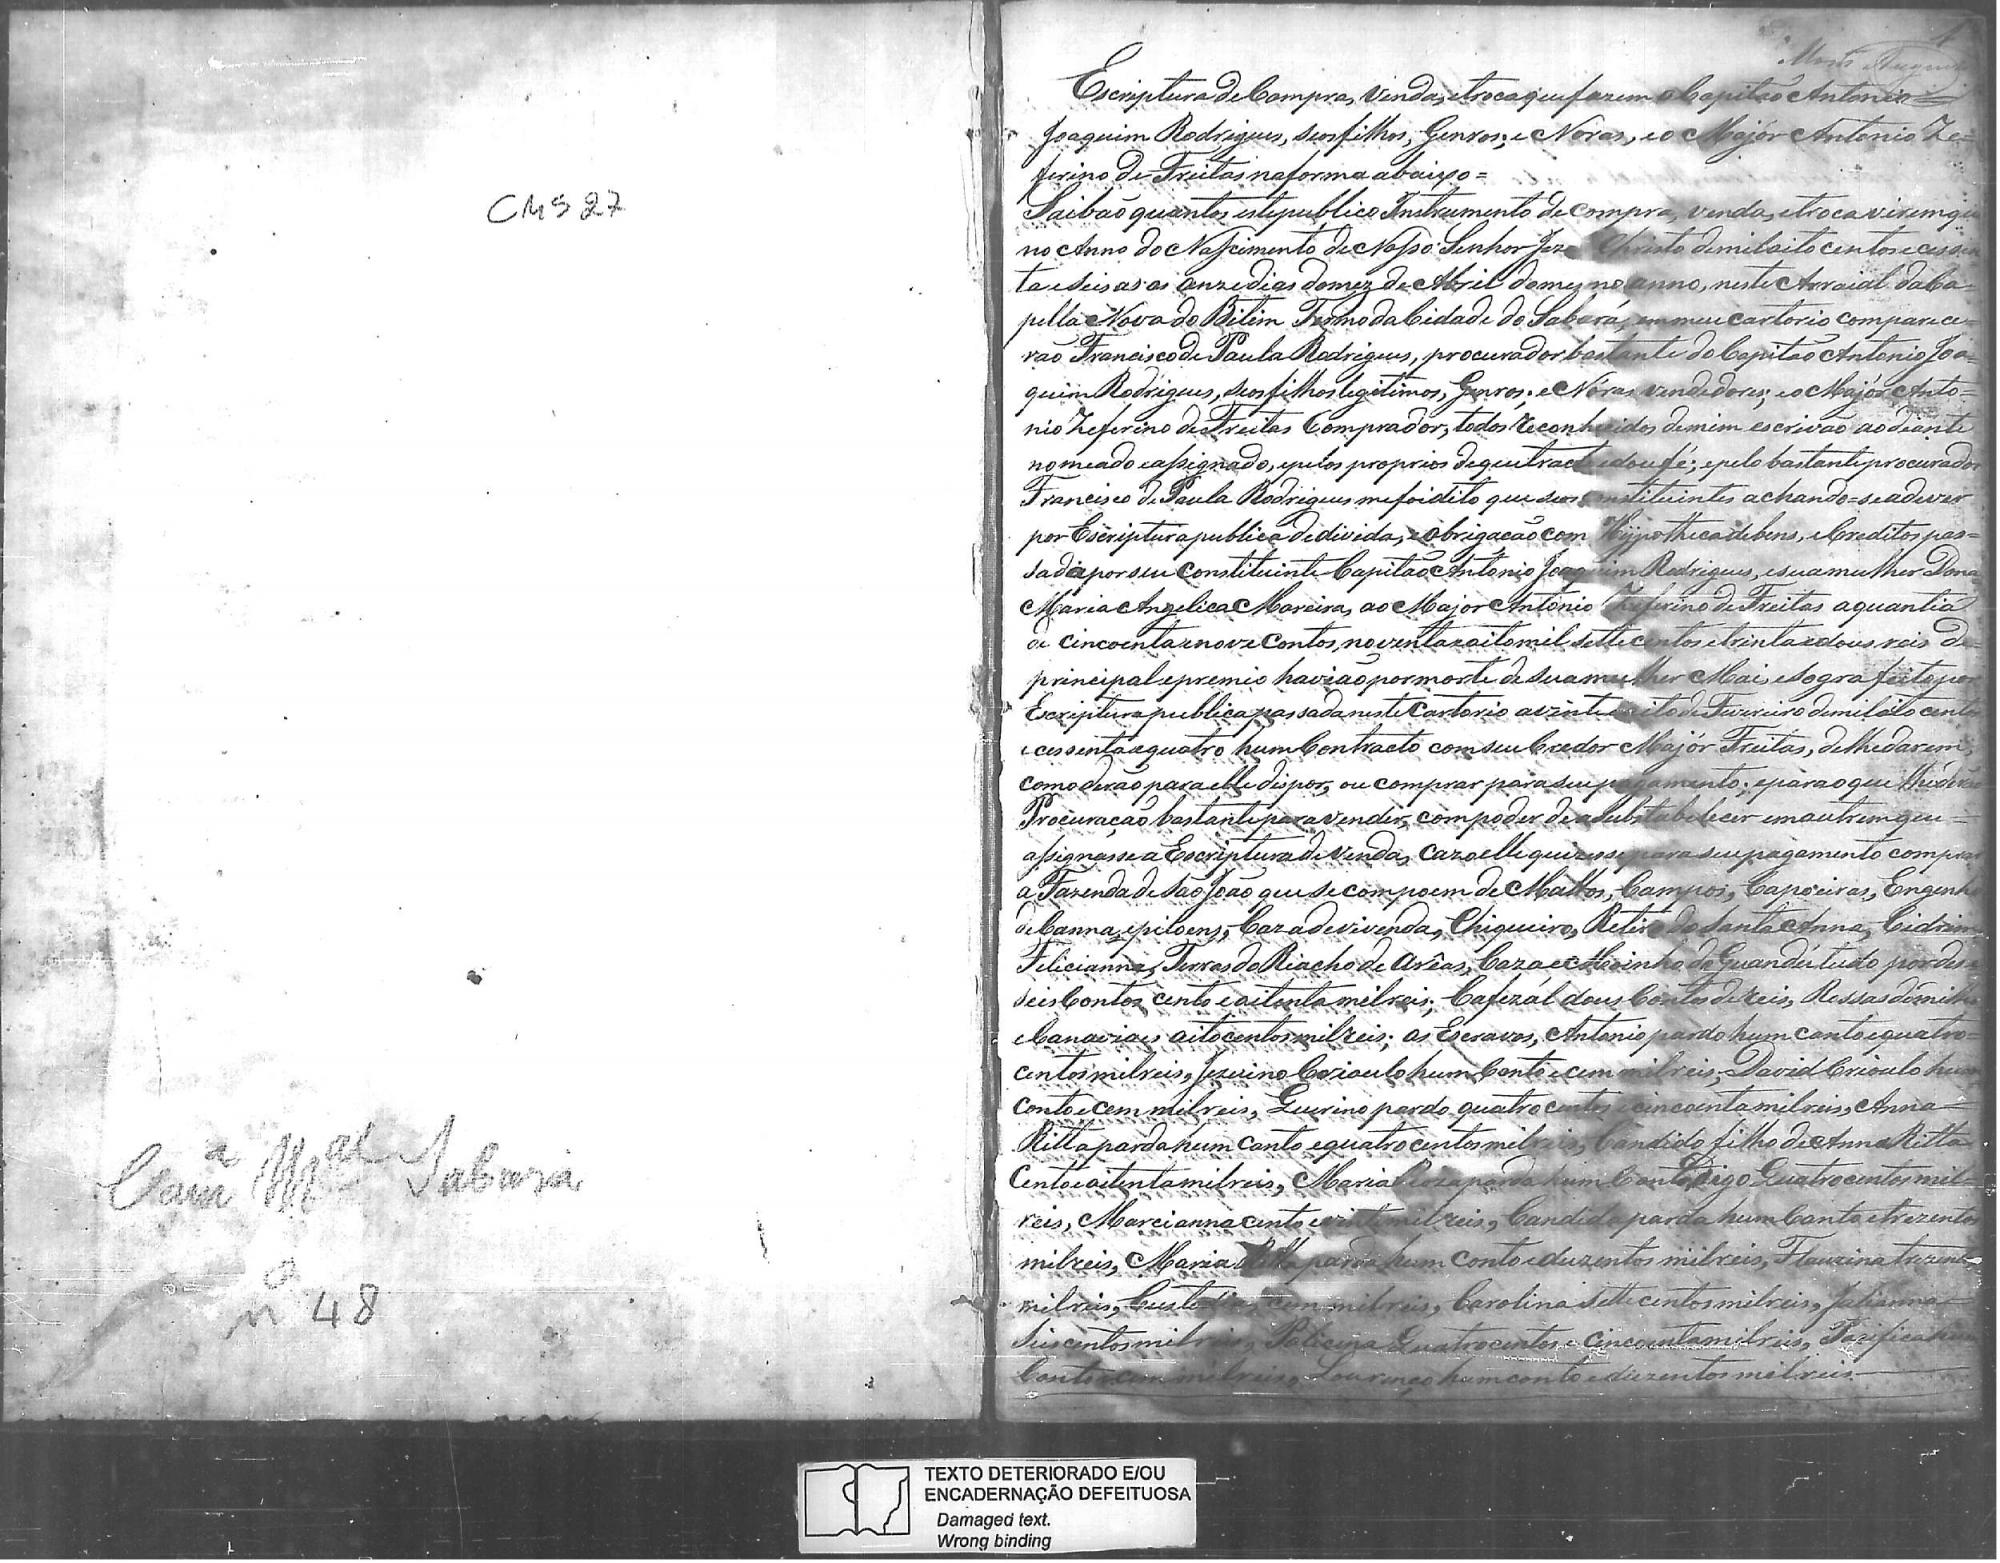 CMS 27
Camª Mal Sabara
nº 48
1
Escriptura de Compra, Venda, e troca que fazem o Capitão Antonio
Joaquim Rodrigues, seos filhos, Genros, e Noras, e o Majór Antonio Ze=
ferino de Freitas na forma abaixo=
Saibão quantos este publico Instrumento de compra, venda, e troca virem que
no Anno do Nascimento de Nosso Senhor Jezu Christo de mil oito centos e cessen
ta e seis aos onze dias do mez de Abril do mesmo anno, neste Arraial da Ca=
pella Nova do Bitim Termo da Cidade do Sabará, em meu cartorio comparece=
rão Francisco de Paula Rodrigues, procurador bastante do Capitão Antonio Joa=
quim Rodrigues, seos filhos legitimos, Genros, e Nóras vendedores, e o Majór Anto=
nio Zeferino de Freitas Comprador, todos reconhecidos de mim escrivão ao diante
nomeado e assignado, e pelos proprios de que tracto e dou fé; e pelo bastante procurador
Francisco de Paula Rodrigues me foi dito que seos constituintes achando=se a dever
por Escriptura publica de divida, e obrigação com Hypotheca de bens, e Creditos pas=
sada por seu Constituinte Capitão Antonio Joaquim Rodrigues, e sua mulher Dona
Maria Angelica Moreira, ao Major Antonio Zeferino de Freitas a quantia
de cincoenta e nove Contos, noventa e oito mil sette centos e trinta e dous reis de
principal e premio havião por morte de sua mulher Mai, e Sogra feito por
Escriptura publica passada neste Cartorio a vinte e oito de Fevereiro de mil oito centos
e cessenta e quatro hum Contracto com seu Credor Majór Freitas, de lhe darem,
como derão para elle dispor, ou comprar para seu pagamento; e para o que lhe derão
Procuração bastante para vender, com poder de a substabelecer em outrem que=
assignasse a Escriptura de venda, cazo elle quizesse para seu pagamento comprar
a Fazenda de São João que se compoem de Mattos, Campos, Capoeiras, Engenho
de Canna, e piloens, Caza de vivenda, Chiqueiro, Retiro de Santa Anna,
Felicianna, Terras do Riacho de Arêas, Caza e Moinho de Guandú tudo por des=
seis Contos cento e oitenta mil reis; Cafezál dous Contos de reis, Rossas de milho
e Canaviaes oito centos mil reis; os Escravos, Antonio pardo hum conto e quatro=
centos mil reis, Jezuino Crioulo hum Conto e cem mil reis, David Crioulo hum
conto e cem mil reis, Querino pardo quatro centos e cincoenta mil reis, Anna
Ritta parda hum conto e quatro centos mil reis, Candido filho de Anna Ritta
Cento e oitenta mil reis, Maria Roza parda hum Conto, digo Quatro centos mil=
reis, Marcianna cento e vinte mil reis, Candida parda hum Conto e trezentos
mil reis, Maria Ritta parda hum conto e duzentos mil reis, Flauzina trezentos
mil reis, Custodia, cem mil reis, Carolina sette centos mil reis, Julianna
Seis centos mil reis, Policena Quatro centos e cincoenta mil reis, Pacifica hum
Conto e cem mil reis, Lourenço hum conto e duzentos mil reis.
TEXTO DETERIORADO E/OU
ENCADERNAÇÃO DEFEITUOSA
Damaged text.
Wrong binding